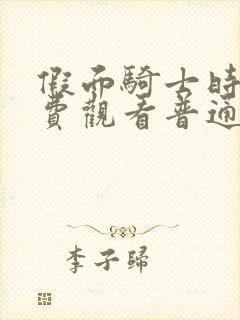 假面騎士時
費觀看普通
李子歸